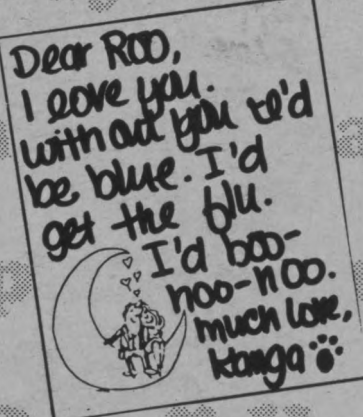 Dear Roo,
I love you.
without you I'd
be blue. I'd
get the flu.
I'd boo-
hoo-hoo.
much love,
Kanga